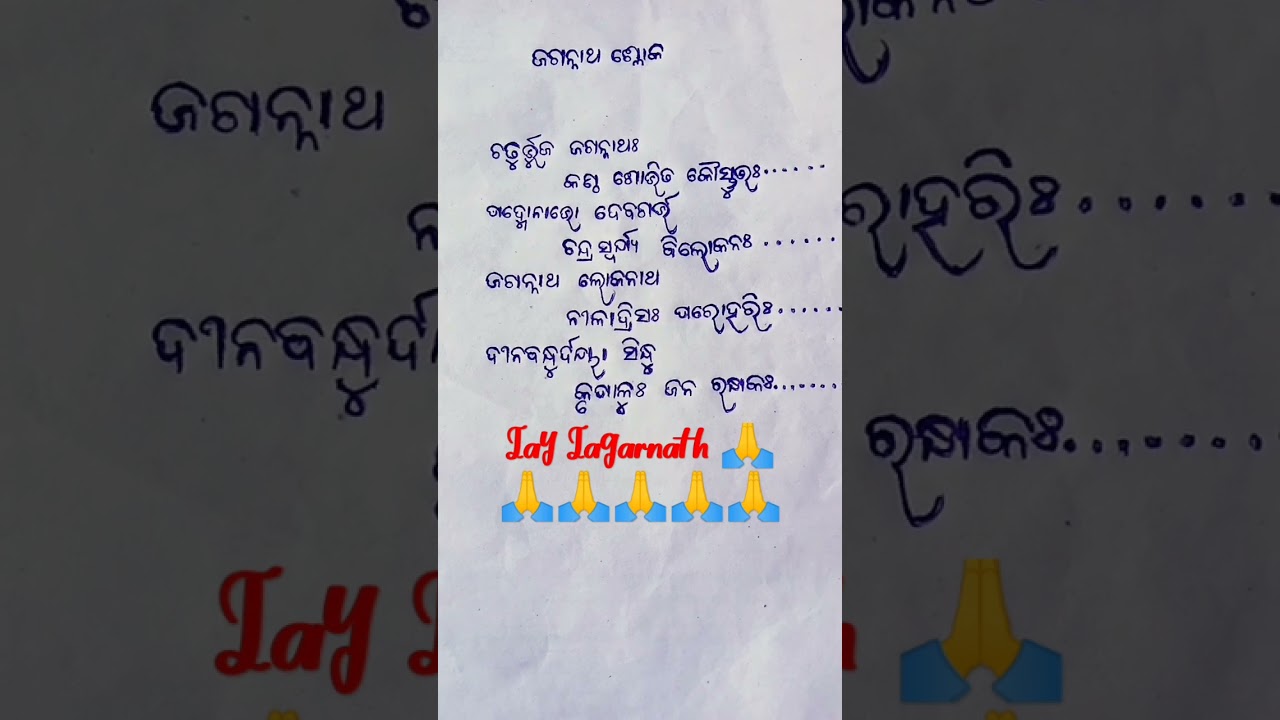 ଜଗନ୍ନାଥ ଶ୍ଳୋକ
ଚତୁର୍ଭୁଜ ଜଗନ୍ନାଥଃ
କଣ୍ଠ ଶୋଭିତ କୌସ୍ତୁଭଃ......
ପଦ୍ମୋନାଭୋ ଦେବଗର୍ଭ
ଚନ୍ଦ୍ର ସୂର୍ଯ୍ୟ ବିଲୋକନଃ ......
ଜଗନ୍ନାଥ ଲୋକନାଥ
ନୀଳାଦ୍ରିସଃ ପରୋହରିଃ......
ଦୀନବନ୍ଧୁର୍ଦୟା ସିନ୍ଧୁ
କୃପାଳୁଃ ଜନ ରକ୍ଷକଃ.......
Jay Jagarnath 🙏
🙏🙏🙏🙏🙏